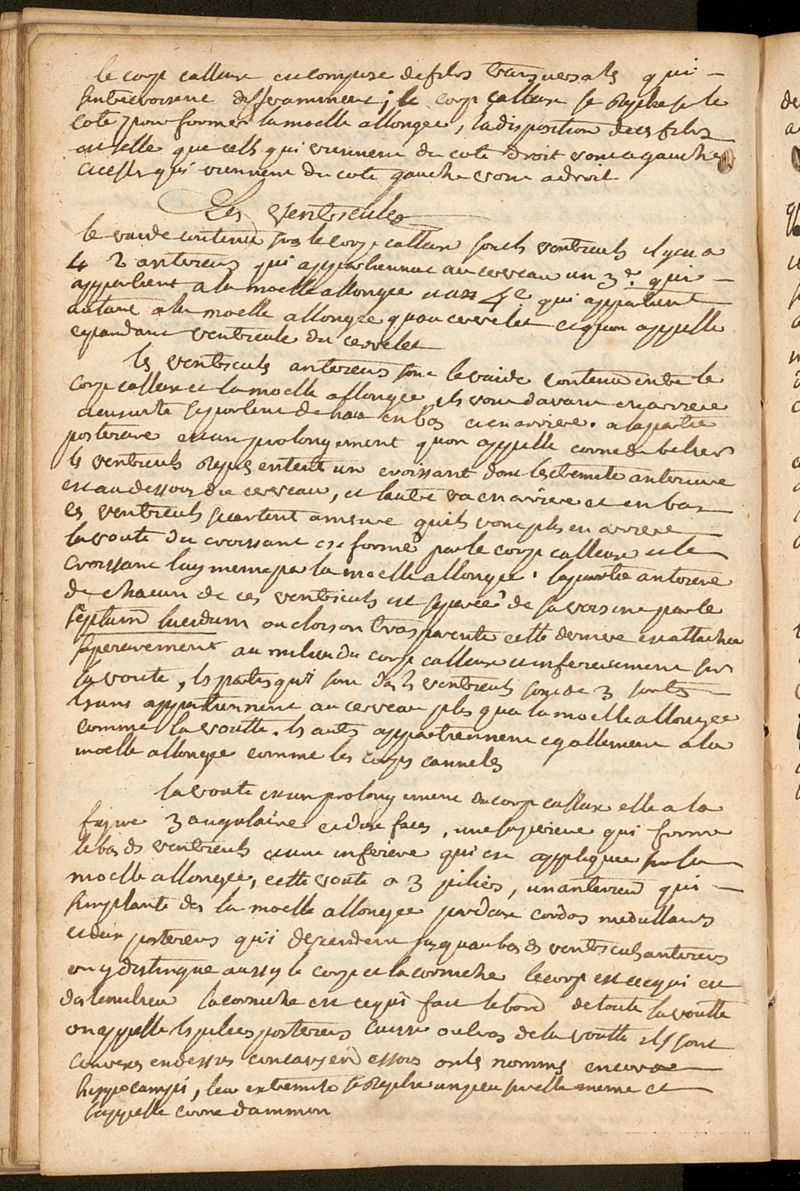 le corp calleux est compose de filets transversals qui
sentrecroisent differamment ; le corp calleux se replie sur le
coté pour former la moelle allongée, la disposition de ces filets
est telle que cells qui viennent du coté droit vont a gauche
et cells qui viennent du coté gauche vont a droit
Les ventricules
le vuide contenu sous le corp calleux sont les ventriculs il y en a
4 2 anterieurs qui appartiennent au cerveau un 3e qui
appartient a la moelle allongée et un 4e qui appartient
autant a la moelle allongée quau cervelet et quon appelle
cependant ventricule du cervelet
les ventriculs anterieurs sont le vuide contenu entre le
corp calleux et la moelle allongée, ils vont davant en arriere
et ensuite se portent de haut en bas et en arriere. a la partie
posterieure est un prolongement quon appelle corne de belier
ls ventriculs representent un croissant dont lextremité anterieure
est au dessous du cerveau, et lautre va en arriere et en bas
ces ventriculs secartent a mesure quils vont plus en arriere
la voute du croissant est formé par le corp calleux et le
croissant luy meme par la moelle allongée. la partie anterieure
de chacun de ces ventriculs est separée de sa voisine par le
septum lucidum ou cloison transparente cette derniere est attachée
superieurement au milieu du corp calleux et inferieurement sur
la voute, ls partis qui sont ds ls ventriculs sont de 3 sortes
ls uns appartiennent au cerveau plus qua la moelle allongée
comme la voutte. ls autrs appartiennent egallement a la
moelle allongée comme les corps cannelés
la voute est un prolongement du corp calleux elle a la
figure 3angulaire et deux faces, une superieure qui forme
le bas ds ventriculs et une inferieure qui est appliquée sur la
moelle allongée, cette voute a 3 piliers, un anterieur qui
simplante ds la moelle allongée par deux cordons medullaires
et deux posterieurs qui descendent jusquau bas ds ventriculs anterieurs
on y distingue aussy le corp et la corniche le corp est ce qui est
ds le milieu la corniche est ce qui fait le bord de toute la voutte
on appelle ls piliers posterieurs cuisse ou bras de la voutte ils sont
convexes en dessus concaves en dessous on ls nomme encore
hippocampi, leur extremité se replie un peu sur elle meme et
sappelle corne dammon